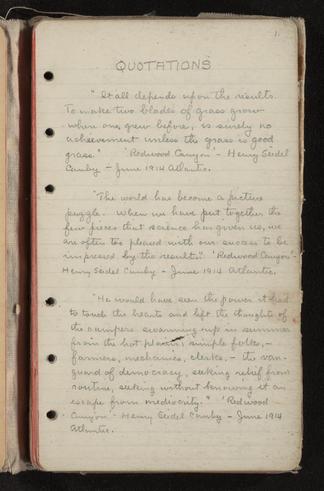 1.
QUOTATIONS
"It all depends upon the results.
To make two blades of grass grow
when one grew before, is surely no
achievement unless the grass is good
grass." 'Redwood Canyon' - Henry Seidel
Canby - June 1914 Atlantic.
"The world has become a picture
puzzle. When we have put together the
few pieces that science has given us, we
are often too pleased with our success to be
impressed by the results." 'Redwood Canyon' -
Henry Seidel Canby - June 1914 Atlantic.
"He would have seen the power it had
to touch the hearts and lift the thoughts of
the campers swarming up in summer
from the hot plains; simple folks, -
farmers, mechanics, clerks, - the van-
guard of democracy, seeking relief from
routine, seeking without knowing it an
escape from mediocrity." 'Redwood
Canyon' - Henry Seidel Canby - June 1914
Atlantic.